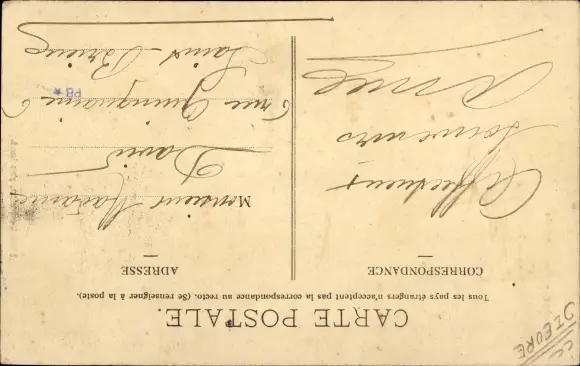 CARTE POSTALE.
Tous les pays étrangers n'acceptent pas la correspondance au recto. (Se renseigner à la poste).
CORRESPONDANCE
Affectueux
souvenirs
ADRESSE
Monsieur Madame
David
6 rue Quinquaine 6
Saint-Brieuc
PB